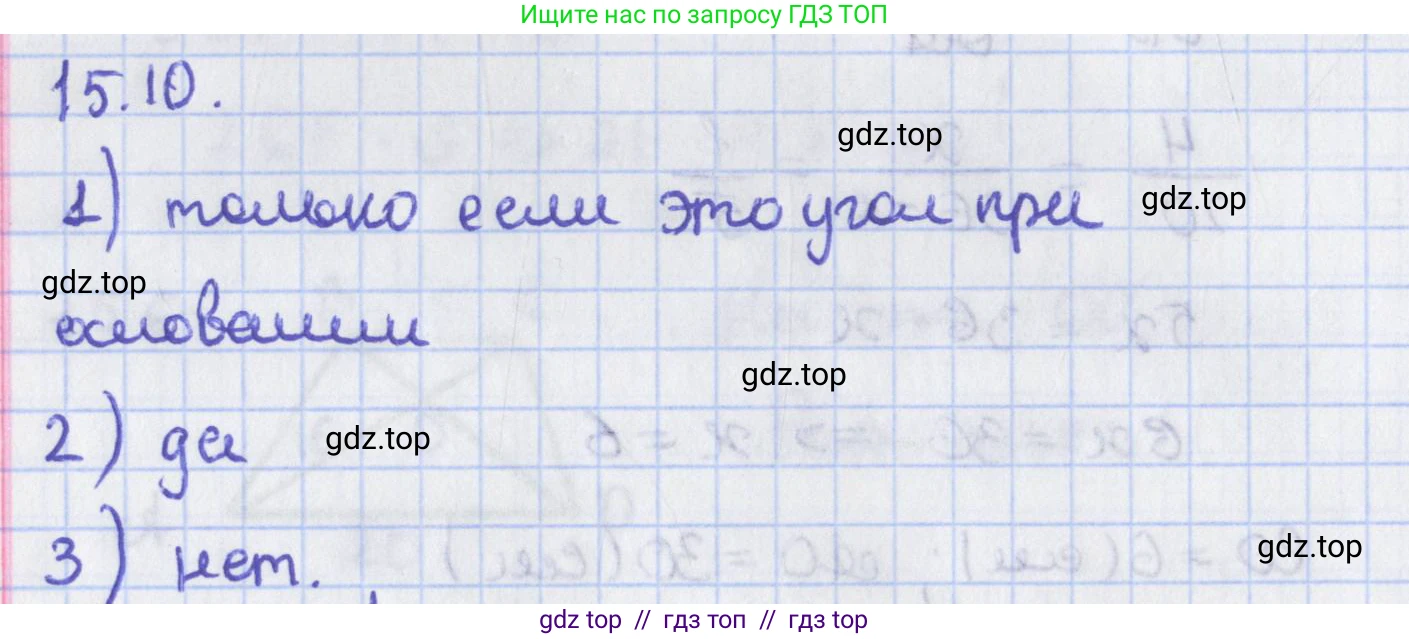 Ищите нас по запросу ГДЗ ТОП
15.10.
gdz.top
1) только если это угол при gdz.top
gdz.top
основании
gdz.top
2) да gdz.top
3) нет. gdz.top
gdz top // гдз топ // гдз top